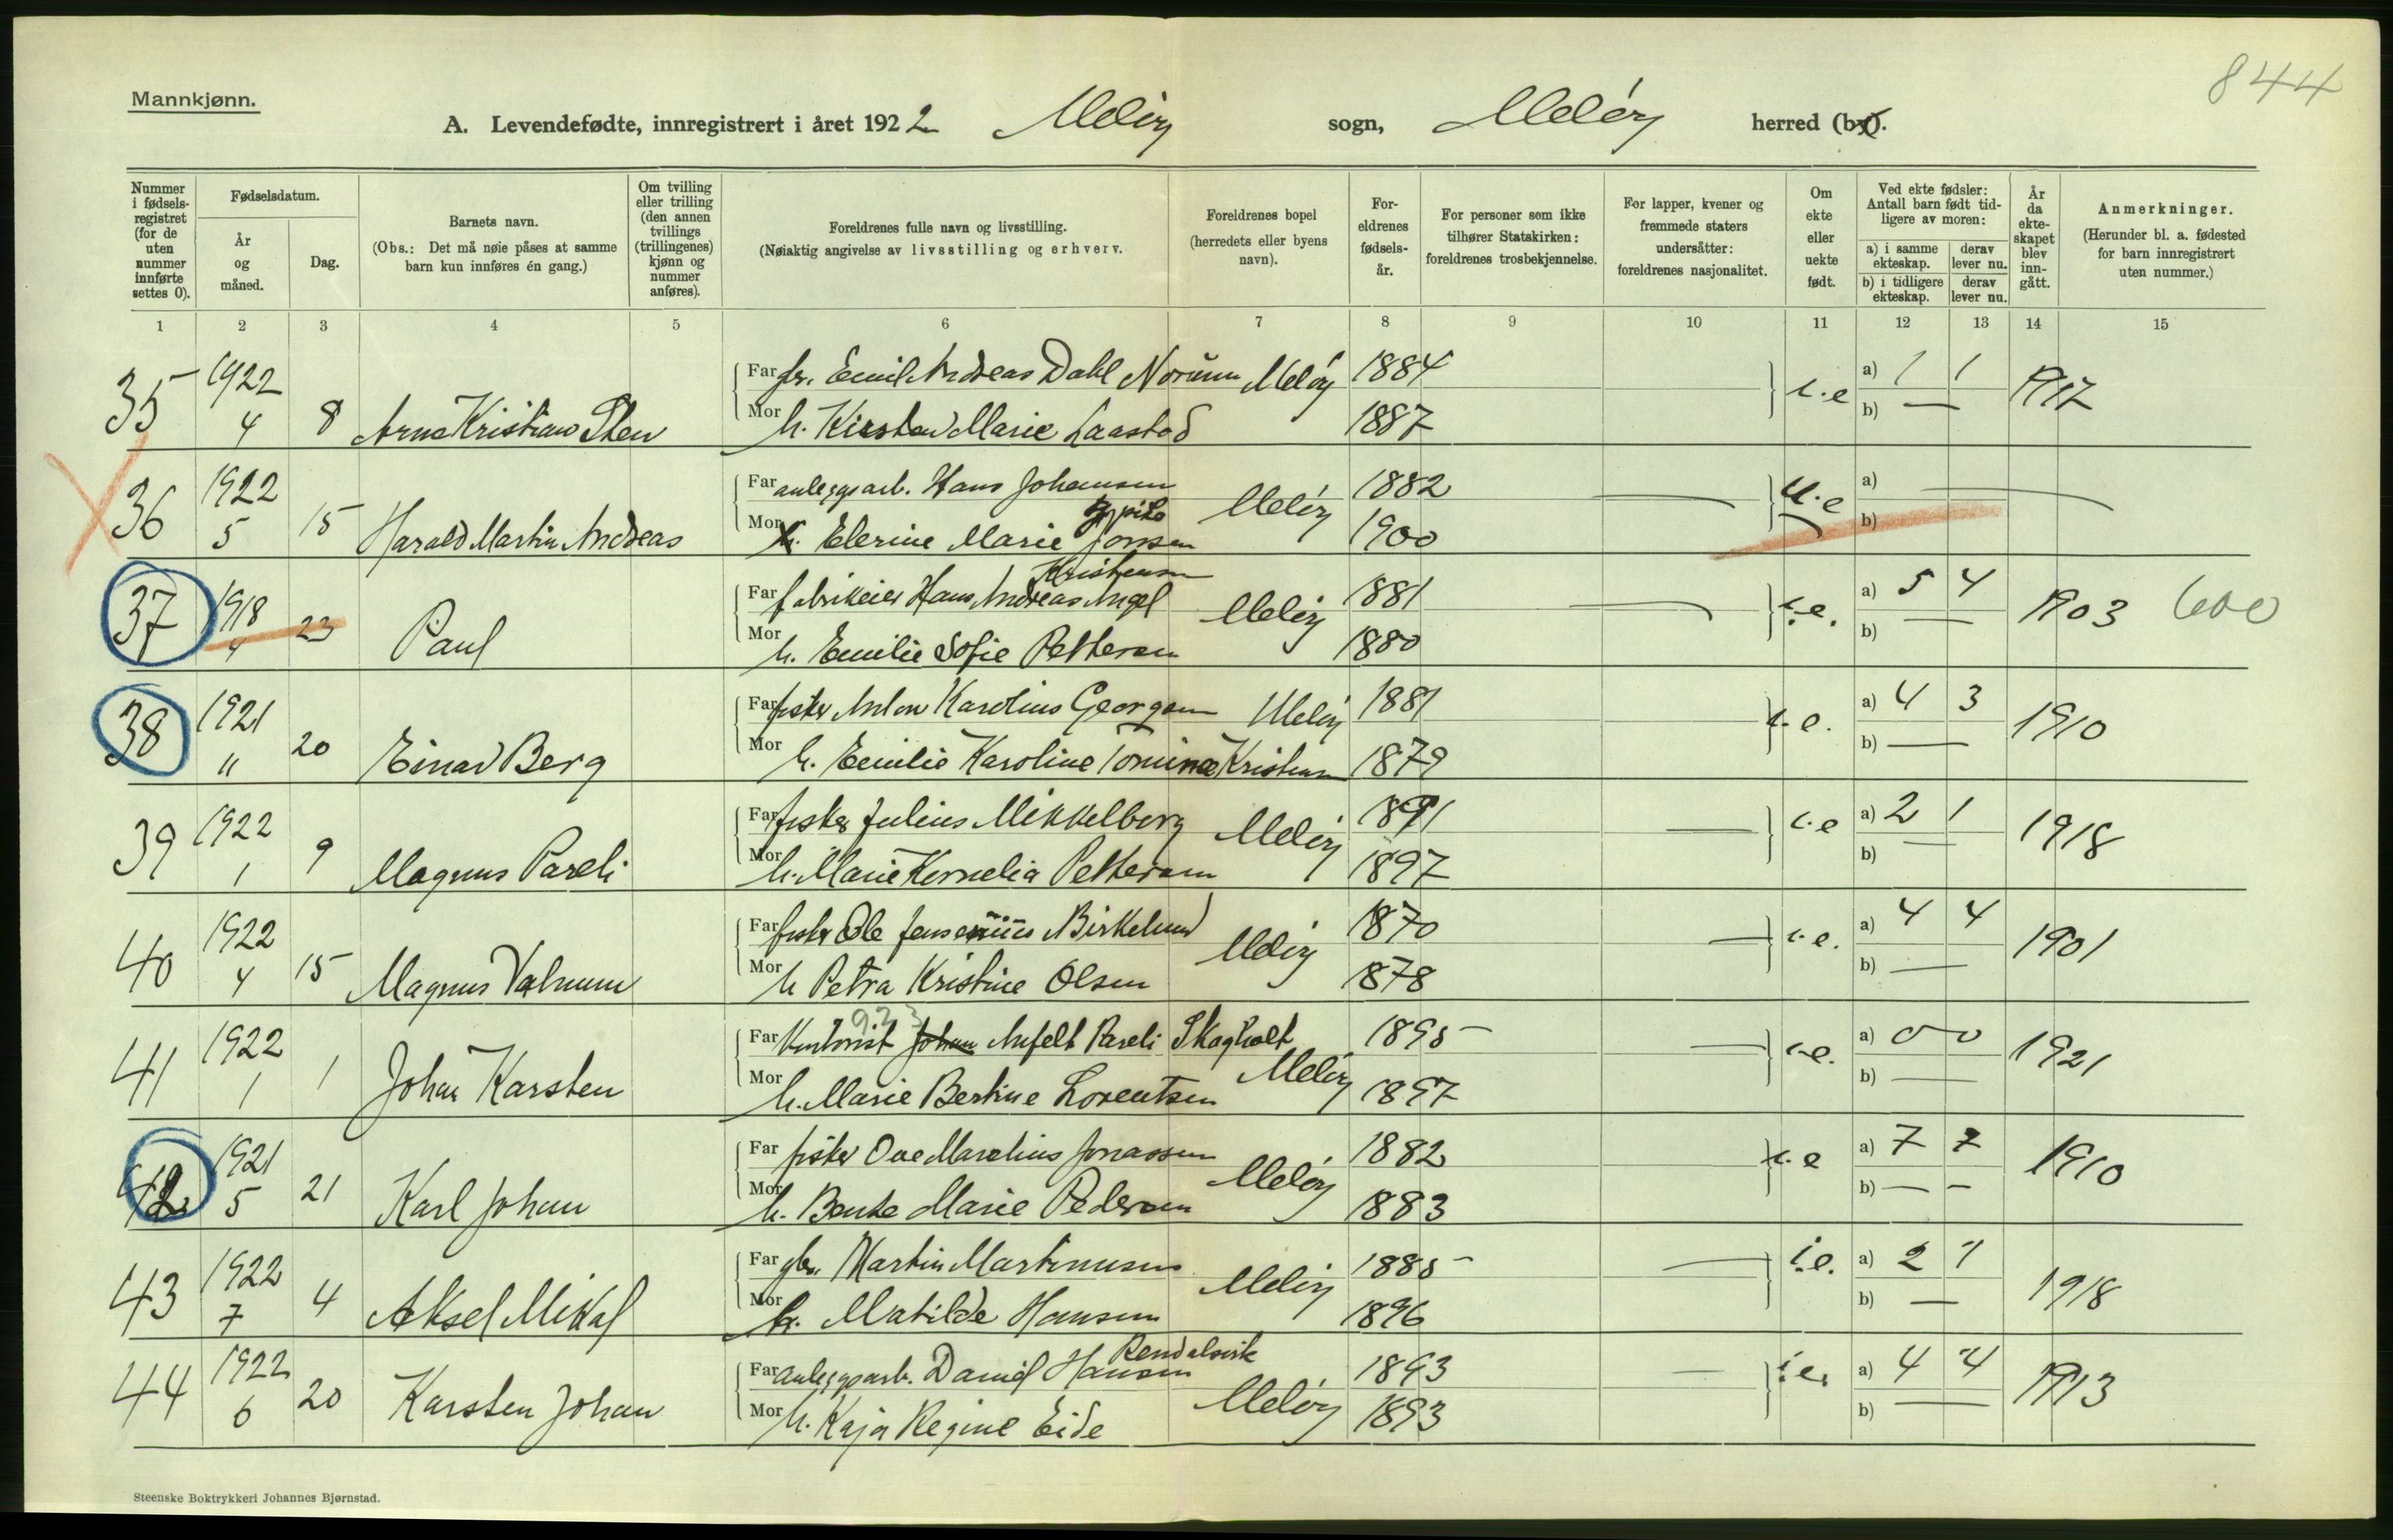 844
Mannkjønn.
A. Levendefødte, innregistrert i året 1922 Meløy sogn, Meløy herred (by).
Nummer i fødsels-registret (for de uten nummer innførte settes 0).
Fødselsdatum.
År og måned.
Dag.
Barnets navn.
(Obs.: Det må nøie påses at samme barn kun innføres én gang.)
Om tvilling eller trilling (den annen tvillings (trillingenes) kjønn og nummer anføres).
Foreldrenes fulle navn og livsstilling.
(Nøiaktig angivelse av livsstilling og erhverv.
Foreldrenes bopel (herredets eller byens navn).
For-eldrenes fødsels-år.
For personer som ikke tilhører Statskirken: foreldrenes trosbekjennelse.
For lapper, kvener og fremmede staters undersåtter: foreldrenes nasjonalitet.
Om ekte eller uekte født.
Ved ekte fødsler: Antall barn født tid-ligere av moren:
a) i samme ekteskap.
derav lever nu.
b) i tidligere ekteskap.
derav lever nu.
År da ekte-skapet blev inn-gått.
Anmerkninger.
(Herunder bl. a. fødested for barn innregistrert uten nummer.)
1 2 3 4 5 6 7 8 9 10 11 12 13 14 15
35 1922 4 8 Arne Kristian Sten
Far Emil Andreas Dahl Norum Meløy 1884 i.e a) 1 1 1917
Mor h. Kirsten Marie Laastad 1887 b) —
36 1922 5 15 Harald Martin Andreas
Far anleggsarb. Hans Johansen Meløy 1882 — u.e a) —
Mor h. pike Elerine Marie Jonsen 1900 b)
37 1918 4 23 Paul
Far fabrikeier Hans Andreas Angel Kristensen Meløy 1881 — i.e. a) 5 4 1903 600
Mor h. Emilie Sofie Pettersen 1880 b) —
38 1921 11 20 Einar Berg
Far fisker Anton Karolius Georgsen Meløy 1881 i.e. a) 4 3 1910
Mor h. Emilie Karoline Kristensen 1879 b) —
39 1922 1 9 Magnus Pareli
Far fisker Julius Mikkelborg Meløy 1891 — i.e a) 2 1 1918
Mor h. Marie Kornelia Pettersen 1897 b) —
40 1922 4 15 Magnus Valnum
Far fisker Ole Birkelund Meløy 1870 — i.e. a) 4 4 1901
Mor h Petra Kristine Olsen 1878 b) —
41 1922 1 1 Johan Karsten
923
Far Kontorist Johan Anfelt Pareli Skagholt 1895 — i.e. a) 0 0 1921
Mor h. Marie Bertine Lorentsen Meløy 1897 b) —
42 1921 5 21 Karl Johan
Far fisker Ove Marelius Jonassen Meløy 1882 i.e a) 7 7 1910
Mor h. Bente Marie Pedersen 1883 b) — —
43 1922 7 4 Aksel Mikal
Far gbr. Martin Martinusen Meløy 1885 — i.e. a) 2 1 1918
Mor h. Matilde Hansen 1896 b) —
44 1922 6 20 Karsten Johan
Far anleggsarb. Daniel Hansen Rendalsvik Meløy 1893 — i.e. a) 4 4 1913
Mor h. Kaja Regine Eide 1893 b) —
Steenske Boktrykkeri Johannes Bjørnstad.